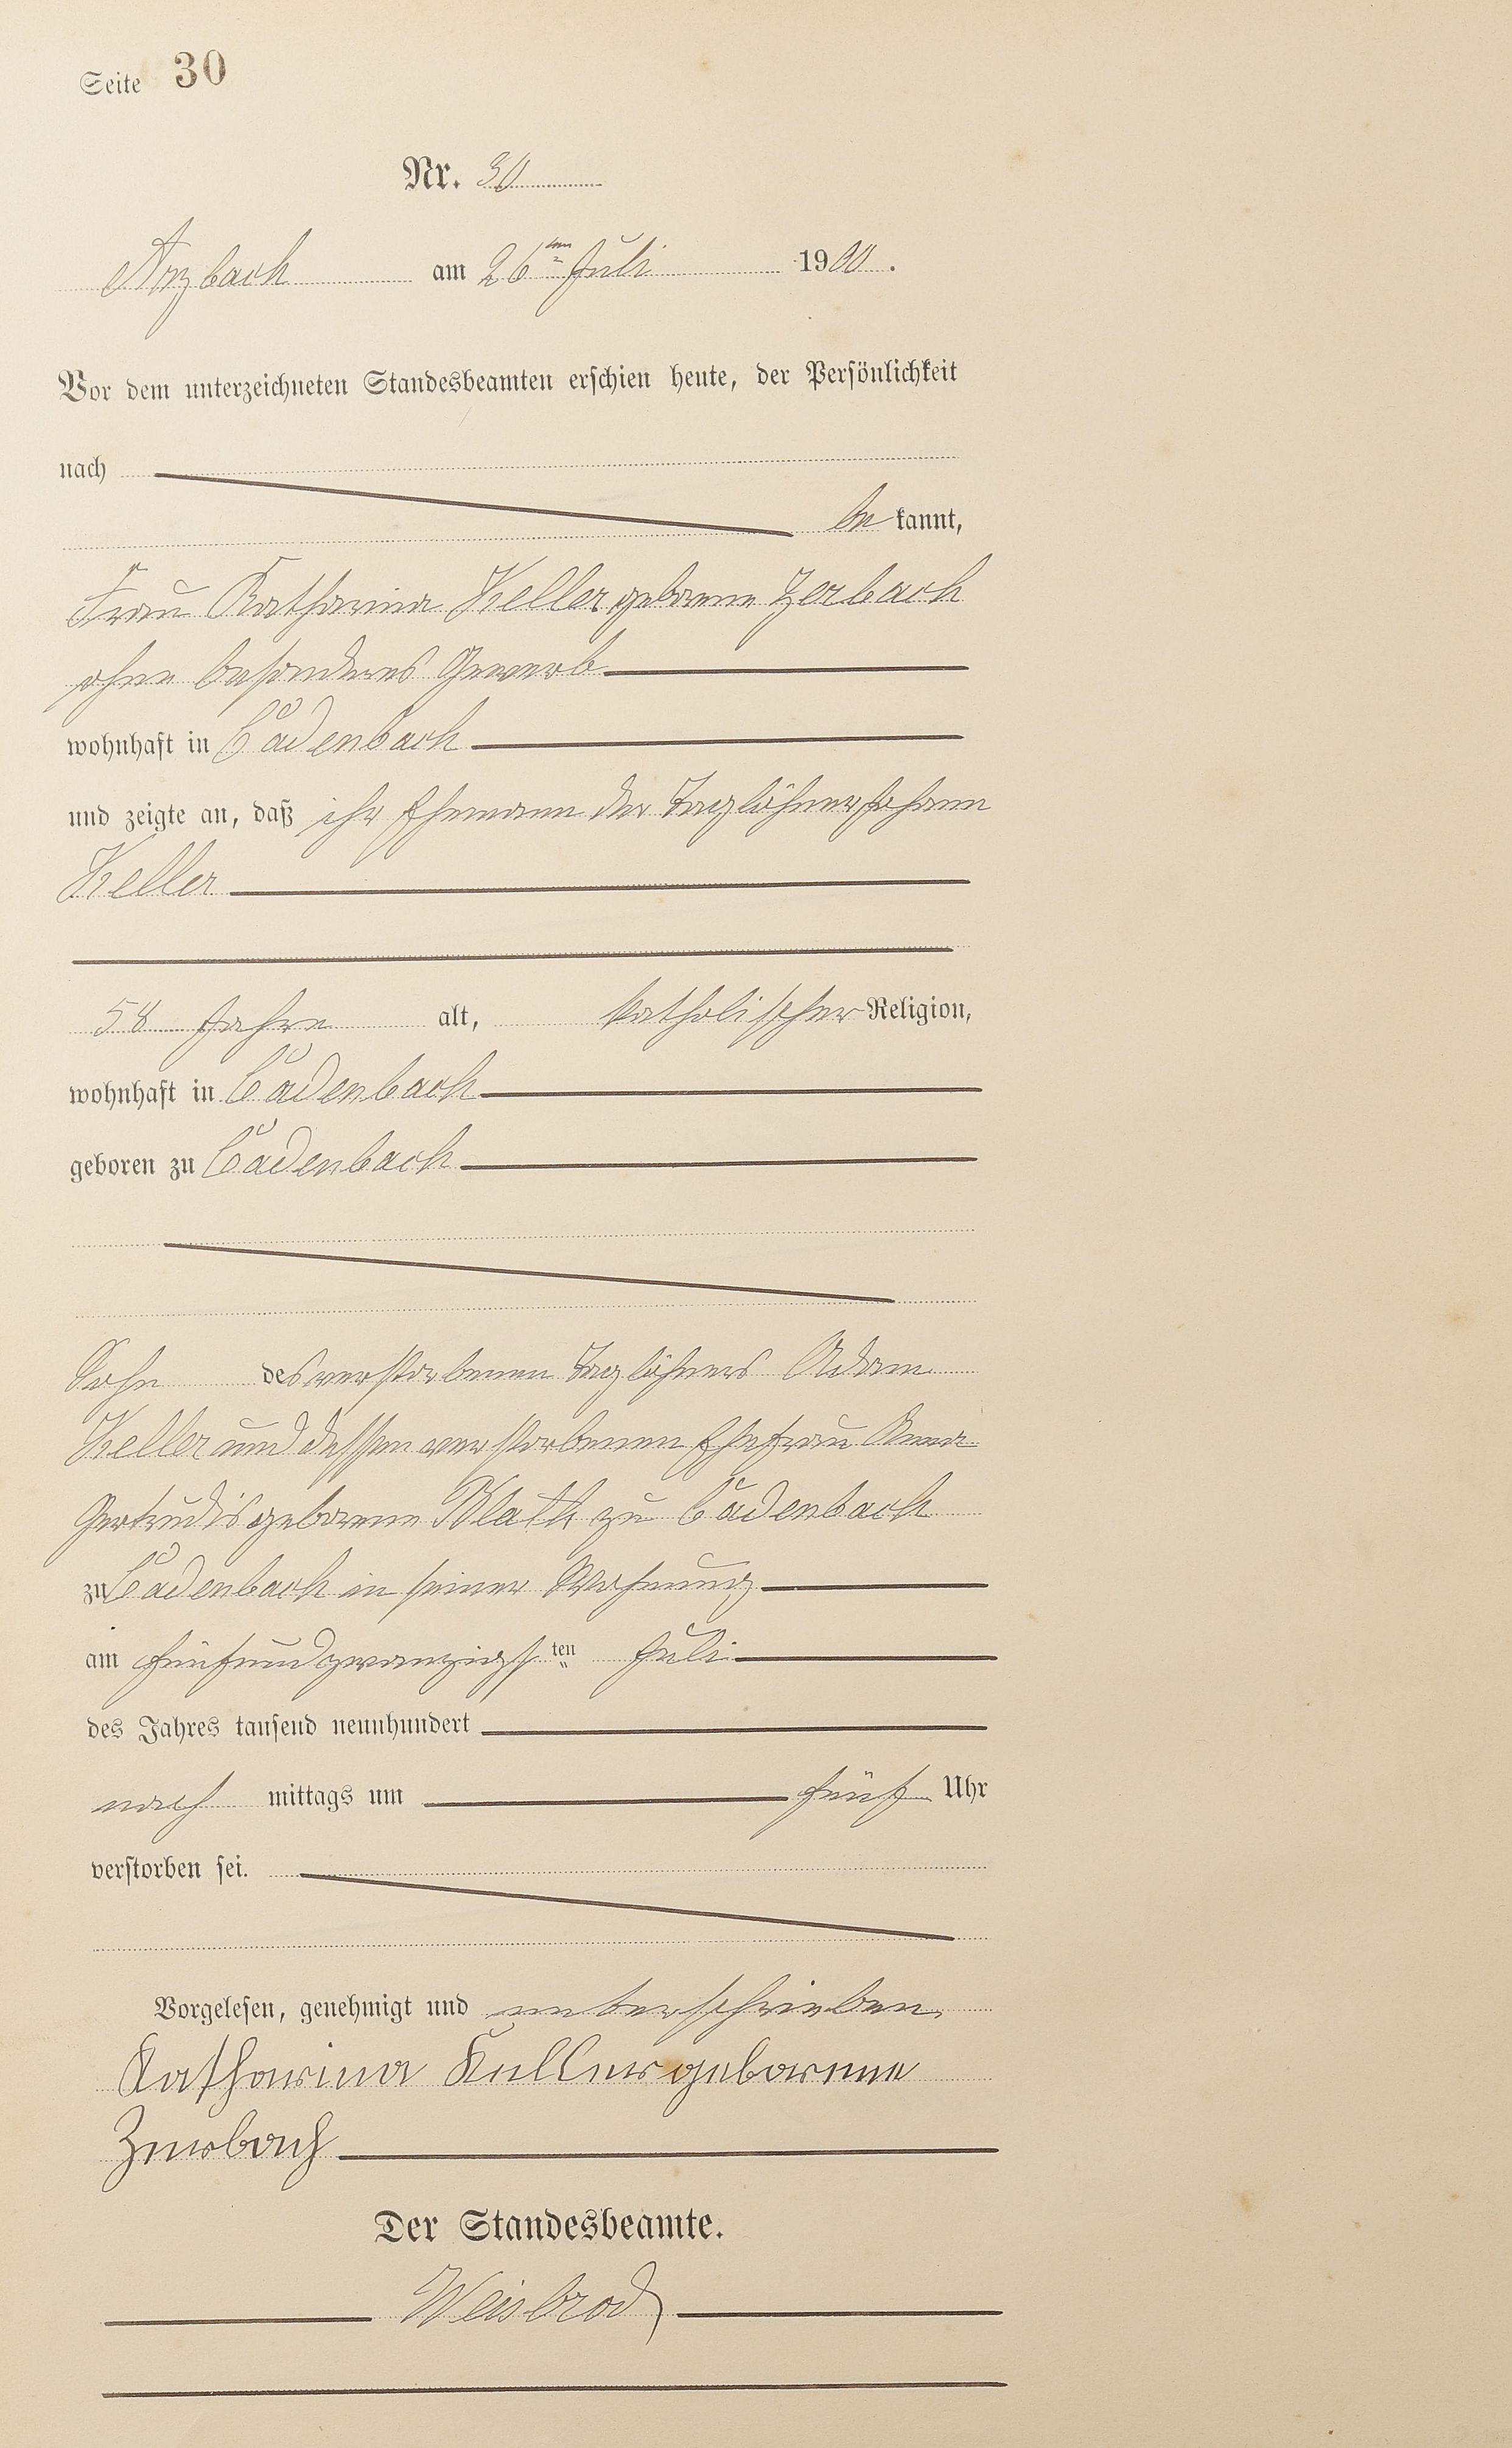 Seite 30
Nr. 30
Arzbach am 26ten Juli 1900.
Vor dem unterzeichneten Standesbeamten erschien heute, der Persönlichkeit
nach
be kannt,
Frau Katharina Keller geborene Zerbach
ohne besonderes Gewerb
wohnhaft in Cadenbach
und zeigte an, daß ihr Ehemann der Taglöhner Johann
Keller
58 Jahre alt, katholischer Religion,
wohnhaft in Cadenbach
geboren zu Cadenbach
Sohn des verstorbenen Taglöhners Adam
Keller und dessen verstorbenen Ehefrau Anna
Gertrudis geborene Blath zu Cadenbach
zu Cadenbach in seiner Wohnung
am fünfundzwanzigsten Juli
des Jahres tausend neunhundert
nach mittags um fünf Uhr
verstorben sei.
Vorgelesen, genehmigt und unterschrieben.
Katharina Keller geborene
Zerbach
Der Standesbeamte.
Weisbrod